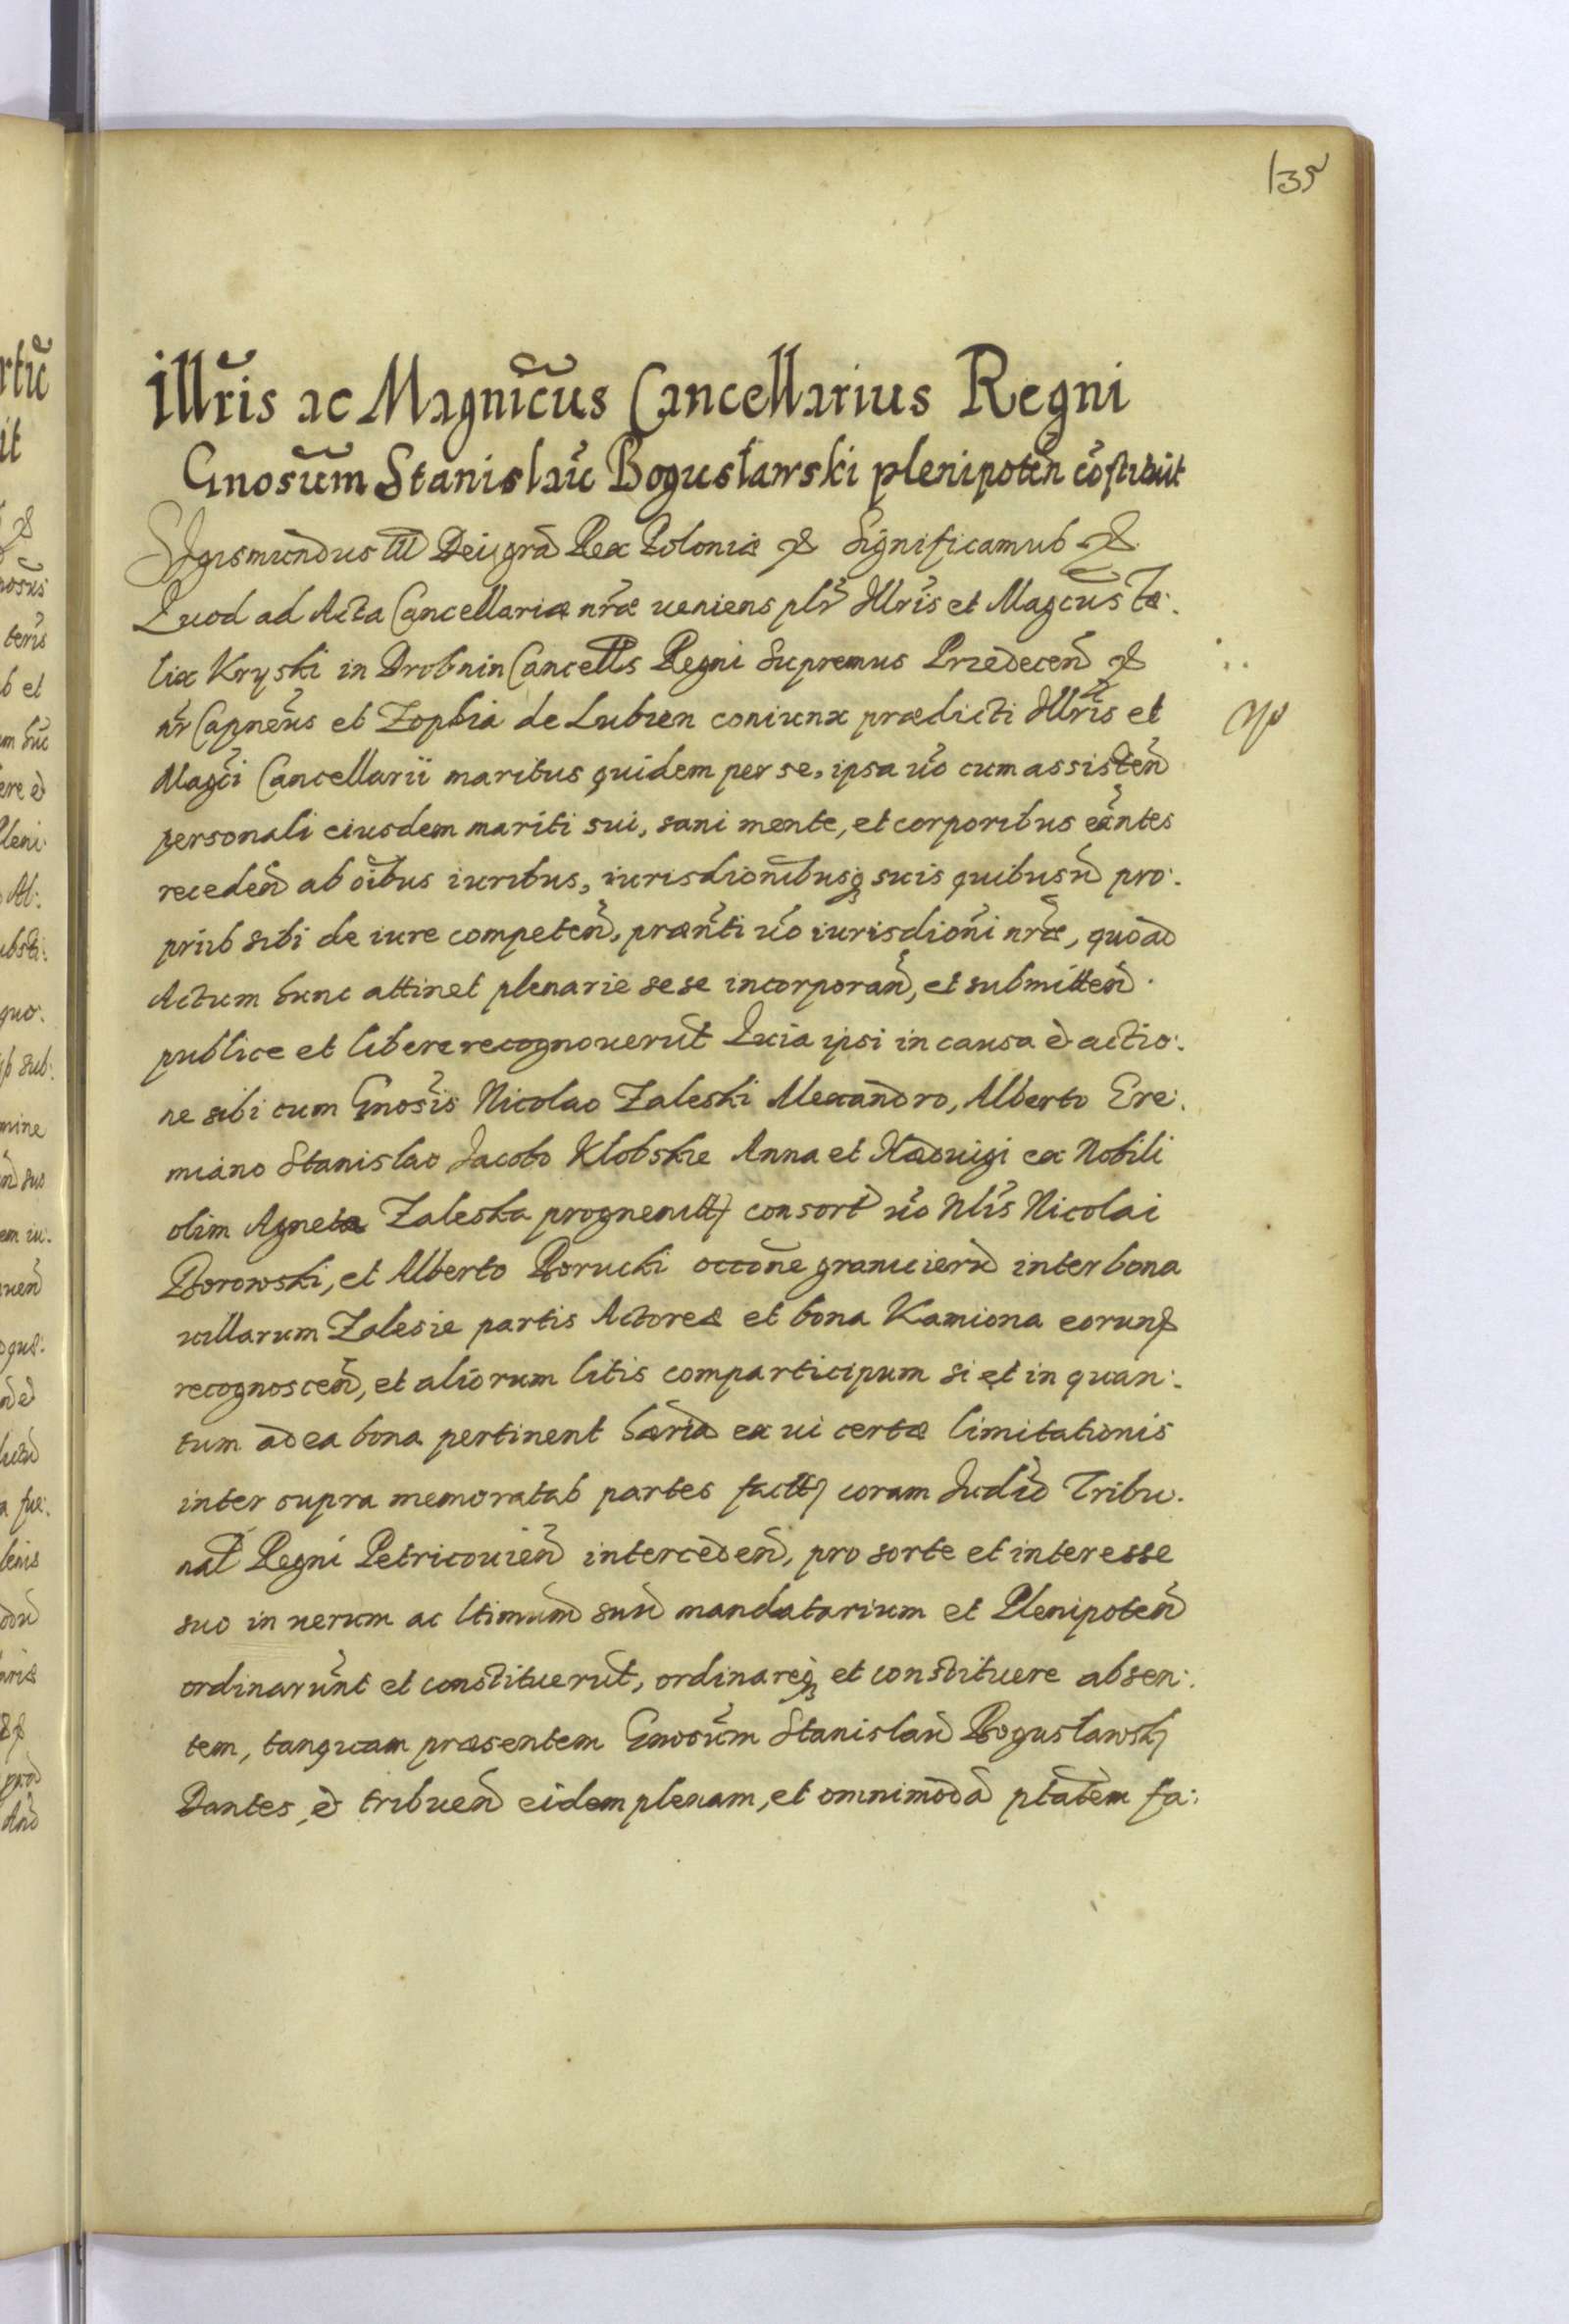 135
Illris ac Magnicus Cancellarius Regni
Gnosum Stanislau Bogusławski plenipoten costituit
Sigismundus III Dei gra Rex Poloniæ & Significamus &
Quod ad Acta Cancellariæ nræ veniens plr Illris et Magcus Fæ:
lix Kryski in Drobnin Cancells Regni Supremus Præ &
nr Capneus et Zophia de Lubien coniunx prædicti Illris et
Magci Cancellarii maritus quidem per se, ipsa uo cum assisten
personali eiusdem mariti sui, sani mente, et corporibus exantes
receden ab oibus iuribus, iurisdionibusq suis quibusu pro:
priis sibi de iure competen, prænti uo iurisdioni nræ, quoad
Actum hunc attinet plenarie sese incorporan, et submitten.
publice et libere recognouerut Quia ipsi in causa et actio:
ne sibi cum Gnosis Nicolao Zaleski Alexandro, Alberto Ere:
miano Stanislao Jacobo Klobskie Anna et Hæduigi ex Nobili
olim Agneta Zaleska consort uo Nlis Nicolai
Borowski, et Alberto Borucki occone granicieru inter bona
uillarum Zalesie partis Actoreæ et bona Kamiona eorund
recognoscen, et aliorum litis comparticipum si et in quan:
tum ad ea bona pertinent hæria ex ui certæ limitationis
inter supra memoratas partes coram Judio Tribu.
nal Regni Petricouien interceden, pro sorte et interesse
suo in uerum ac ltimum suu mandatarium et Plenipoten
ordinarunt et constituerut, ordinareq et constituere absen:
tem, tanquam præsentem Gnosum Stanislau Bogusławski
Dantes, et tribuen eidem plenam, et omnimoda ptatem fa: